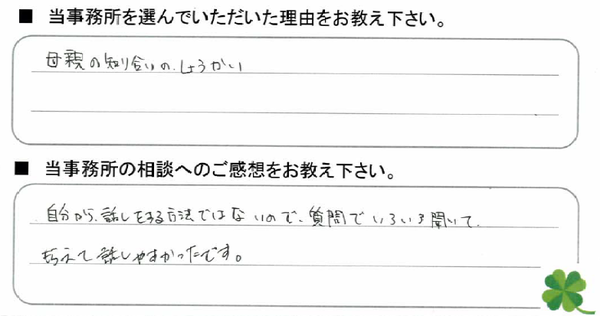 ■ 当事務所を選んでいただいた理由をお教え下さい。
母親の知り合いの、しょうかい
■ 当事務所の相談へのご感想をお教え下さい。
自分から、話しをする方法ではないので、質問でいろいろ聞いて、
もらえて話しやすかったです。